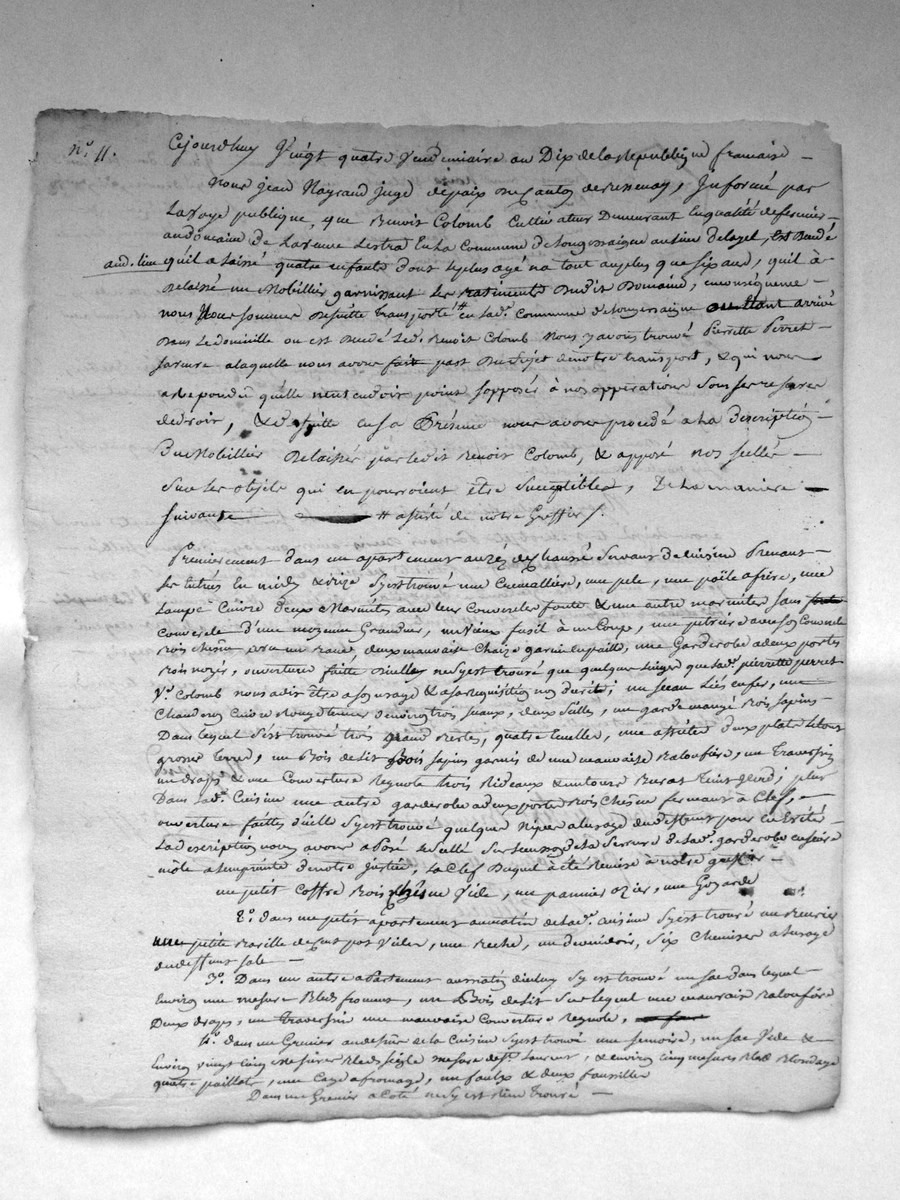 n.° 11. Cejourdhuy Vingt quatre Vendemiaire an Dix de la Republique francaise —
Nous jean Nayrand juge de paix du canton de , Informé par
La voye publique, que Benoit Colomb Cultivateur Demeurant En qualité de fermier
au domaine De Lestra En La Commune de Longessaigne au lieu , Est Decédé
aud. lieu qu'il a laissé quatre enfants dont le plus agé n'a tout au plus que six ans, quil à
Delaissé un Mobillier garnissant les batiments Dudit Domaine, en conséquence
nous nous sommes De suitte transporté # en lad.e Commune de Longessaigne ou étant arrivé
Dans le domicille ou est Decédé led. Benoit Colomb Nous y avons trouvé Pierrette Perret
sa veuve a laquelle nous avons fait part Du sujet de notre transport, & qui nous
a Repondu quelle n'entendoit point s'opposer à nos opperations sous ses reserves
de droit, & De suitte en sa Présence nous avons procedé a La Description
Du Mobillier Delaissé par ledit Benoit Colomb, & apposé nos scellés —
sur les objets qui en pourroient être Suceptibles, De la maniere —
suivante — # assisté de notre Greffier /.
Premierement dans un apartement au réz de chaussé servant de Cuisine Prenant
ses entrés En midy & bize s'y est trouvé une Cremallière, une pele, une poële a frire, une
Lampe Cuivre deux Marmites avec leur Couvercles fonte & une autre marmite sans
couvercle d'une moyenne Grandeur, un vieux fusil à un Coup, une petriere avec son Couvercle
bois chesne un banc, deux mauvaise Chaize garnie en paille, une Garderobe a deux portes
bois noyer, ouverture faitte Dicelle ne s'y est trouvé que quelque linges que lad.e pierrette perret
V.e Colomb nous a dit être a son usage & a sa requisition ; un seau Liés en fer, une
Chaudron Cuivre Rouge tenant denviron trois seaux, deux Seilles, un garde mangé bois sapin
Dans lequel s'est trouvé trois grand , quatre , une assiette deux plats letout
grosse terre, un Bois de lit Bois sapin garnis de une mauvaise Baloufière, un Traversin
un draps & une Couverture trois Rideaux & entour ; plus
Dans lad.e Cuisine une autre garderobe a deux porte bois Chesne fermant à Clef, —
ouverture faittes d'icelle s'y est trouvé quelque nipes a lusage du deffunt pour en Evité
La description nous avons a Posé le scellé sur de la Serrure de lad.e garderobe en cire
mole a lempreinte de notre justice, La Clef Duquel à été Remise à notre greffier —
un petit Coffre Bois Chesne Vide, une pannier ozier, une Goyarde
2.° dans un petit apartement au matin de lad.e Cuisine s'y est trouvé un
une petite Baville de cent pot Vides, une , un devidoir, six Chemises a lusage
du deffunt sale —
3.° Dans un autre a Partement au matin dicelluy s'y est trouvé un sac dans lequel
Environ une mesure Bled froment, un Bois de lit sur lequel une mauvais Baloufière
Deux draps, un Traversin une mauvaise Couverture ,
4.° dans un Grenier au dessus de la Cuisine s'y est trouvé une semoire, un sac Vide &
Environ vingt Cinq Mesures Bled seigle mesure de S.t Laurent, & environ Cinq mesures Bled Blondage
quatre paillats, une Cage a fromage, un faulx & deux faucilles
Dans un Grenier a Coté n'y est rien trouvé —